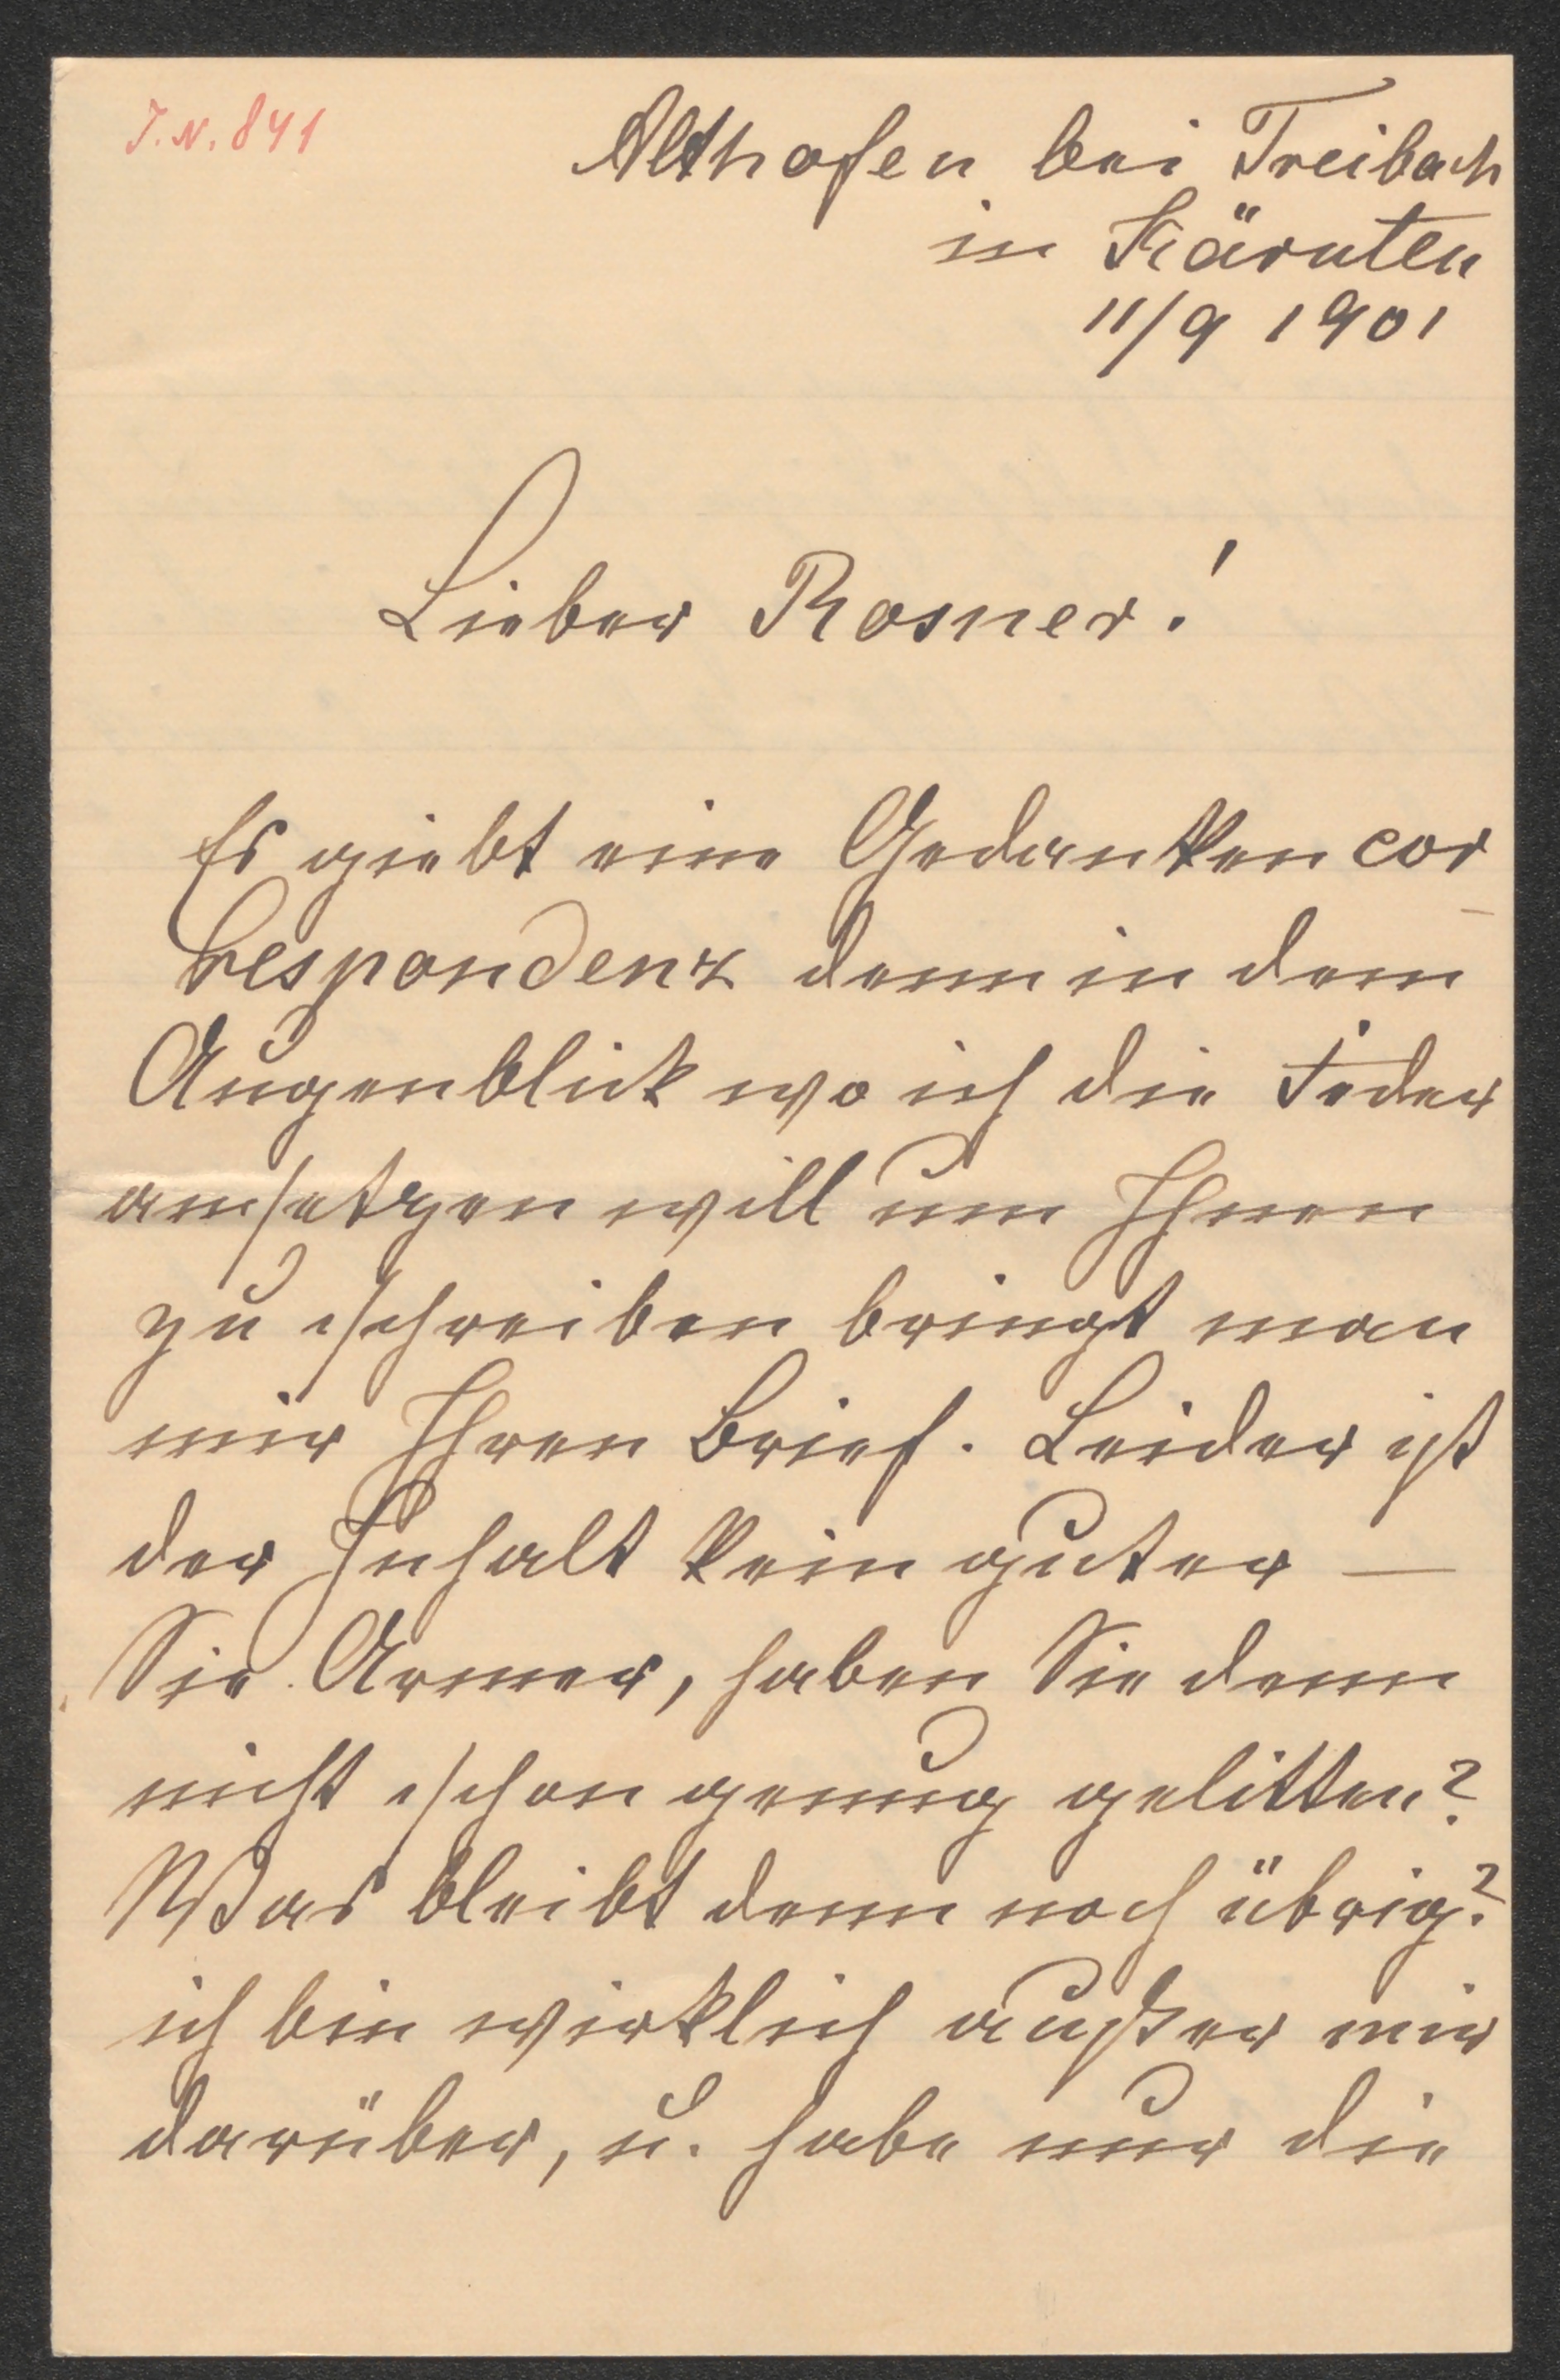 J.N. 841
Althofen bei Treibach
in Kärnten
11/9 1901
Lieber Rosner!
Es giebt eine Gedankencor
respondenz denn in dem
Augenblick wo ich die Feder
ansetzen will um Ihnen
zu schreiben bringt man
mir Ihren Brief. Leider ist
der Inhalt kein guter —
Sie Armer, haben Sie denn
nicht schon genug gelitten?
Was bleibt denn noch übrig?
ich bin wirklich außer mir
darüber, u. habe nur die